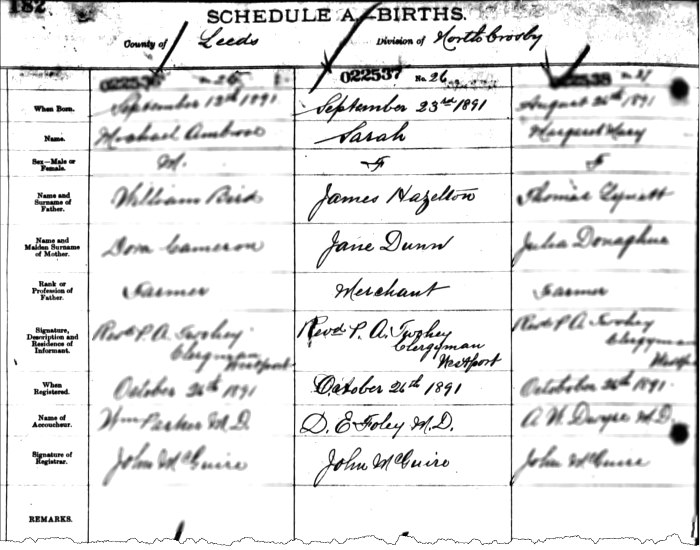 182
SCHEDULE A.—BIRTHS.
County of Leeds Division of North Crosby
022536 No. 25 022537 No. 26 022538 No. 27
When Born. September 12th 1891 September 23rd 1891 August 26th 1891
Name. Michael Ambrose Sarah Margaret Mary
Sex—Male or Female. M. F F
Name and Surname of Father. William Bird James Hazelton Thomas Lynett
Name and Maiden Surname of Mother. Dora Cameron Jane Dunn Julia Donaghue
Rank or Profession of Father. Farmer Merchant Farmer
Signature, Description and Residence of Informant. Revd P. A. Twohey Clergyman Westport Revd P. A. Twohey Clergyman Westport Revd P A. Twohey Clergyman
When Registered. October 26th 1891 October 26th 1891 Octobober 26th 1891
Name of Accoucheur. Wm Parker M.D. D. E Foley M.D. A. W. Dwyre M.D.
Signature of Registrar. John McGuire John McGuire John McGuire
REMARKS.